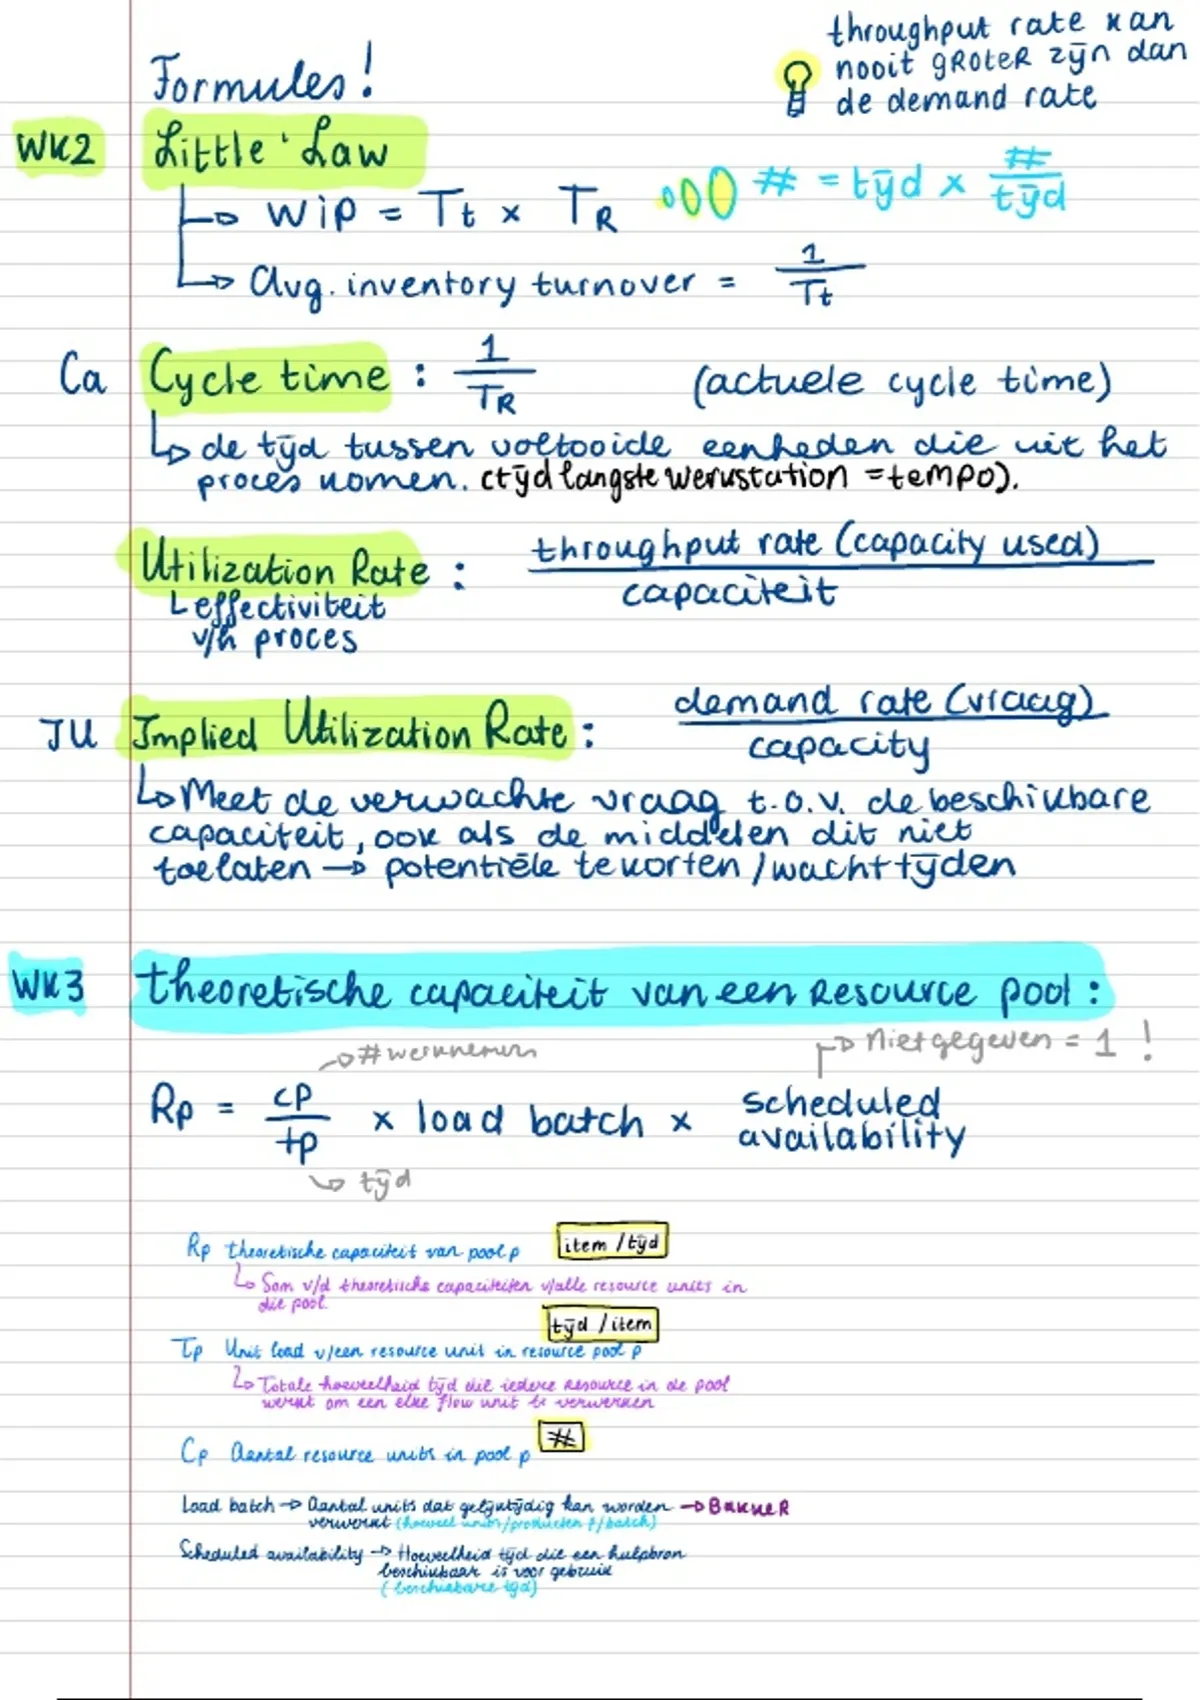 throughput rate kan
nooit groter zijn dan
de demand rate
Formules!
WK2 Little's Law
WiP = Tt x TR # = tijd x #/tijd
Avg. inventory turnover = 1/Tt
Ca Cycle time : 1/TR (actuele cycle time)
de tijd tussen voltooide eenheden die uit het
proces komen. (tijd langste werkstation = tempo).
Utilization Rate : throughput rate (capacity used) / capaciteit
effectiviteit
v/h proces
IU Implied Utilization Rate : demand rate (vraag) / capacity
Meet de verwachte vraag t.o.v. de beschikbare
capaciteit, ook als de middelen dit niet
toelaten → potentiële tekorten / wachttijden
WK3 theoretische capaciteit van een Resource pool :
#werknemers Niet gegeven = 1 !
Rp = cp/tp x load batch x scheduled availability
tijd
Rp theoretische capaciteit van pool p item / tijd
Som v/d theoretische capaciteiten v/alle resource units in
die pool.
tijd / item
Tp Unit load v/een resource unit in resource pool p
Totale hoeveelheid tijd die iedere resource in de pool
werkt om een elke flow unit te verwerken
Cp Aantal resource units in pool p #
Load batch → Aantal units dat gelijktijdig kan worden → BAKKER
verwerkt (hoeveel units/producten p/batch)
Scheduled availability → Hoeveelheid tijd die een hulpbron
beschikbaar is voor gebruik
(beschikbare tijd)